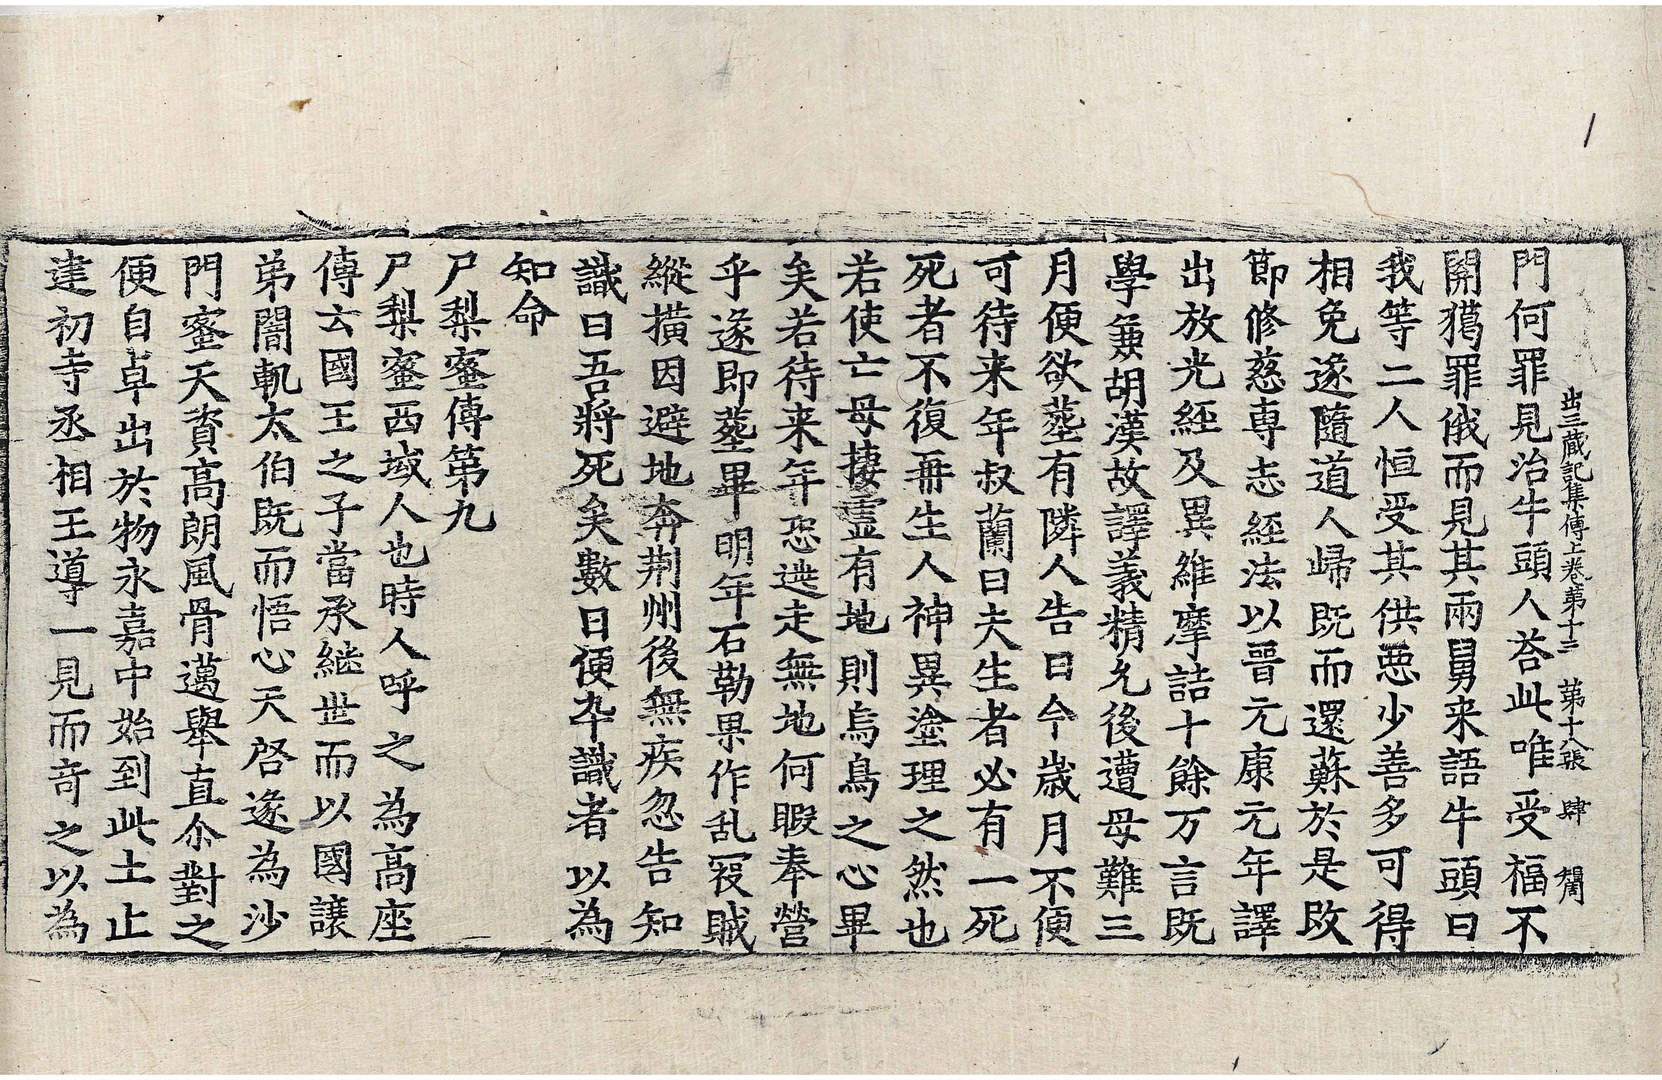 出三藏記集傳上卷第十三 第十八張 肆
門何罪見治牛頭人荅此唯受福不
關獦罪俄而見其兩舅来語牛頭曰
我等二人恒受其供惡少善多可得
相免遂隨道人歸既而還蘇於是改
節修慈専志經法以晉元康元年譯
出放光經及異維摩詰十餘万言既
學兼胡漢故譯義精允後遭母難三
月便欲葬有隣人告曰今歲月不便
可待来年叔蘭曰夫生者必有一死
死者不復再生人神異塗理之然也
若使亡母棲靈有地則烏鳥之心畢
矣若待来年恐逃走無地何暇奉營
乎遂即葬畢明年石勒果作乱寇賊
縱横因避地奔荆州後無疾忽告知
識曰吾將死矣數日便卒識者以為
知命
尸梨蜜傳第九
尸梨蜜西域人也時人呼之為高座
傳云國王之子當承継世而以國譲
弟闇軌太伯既而悟心天啓遂為沙
門蜜天資高朗風骨邁舉直尒對之
便自卓出於物永嘉中始到此土止
建初寺丞相王導一見而竒之以為